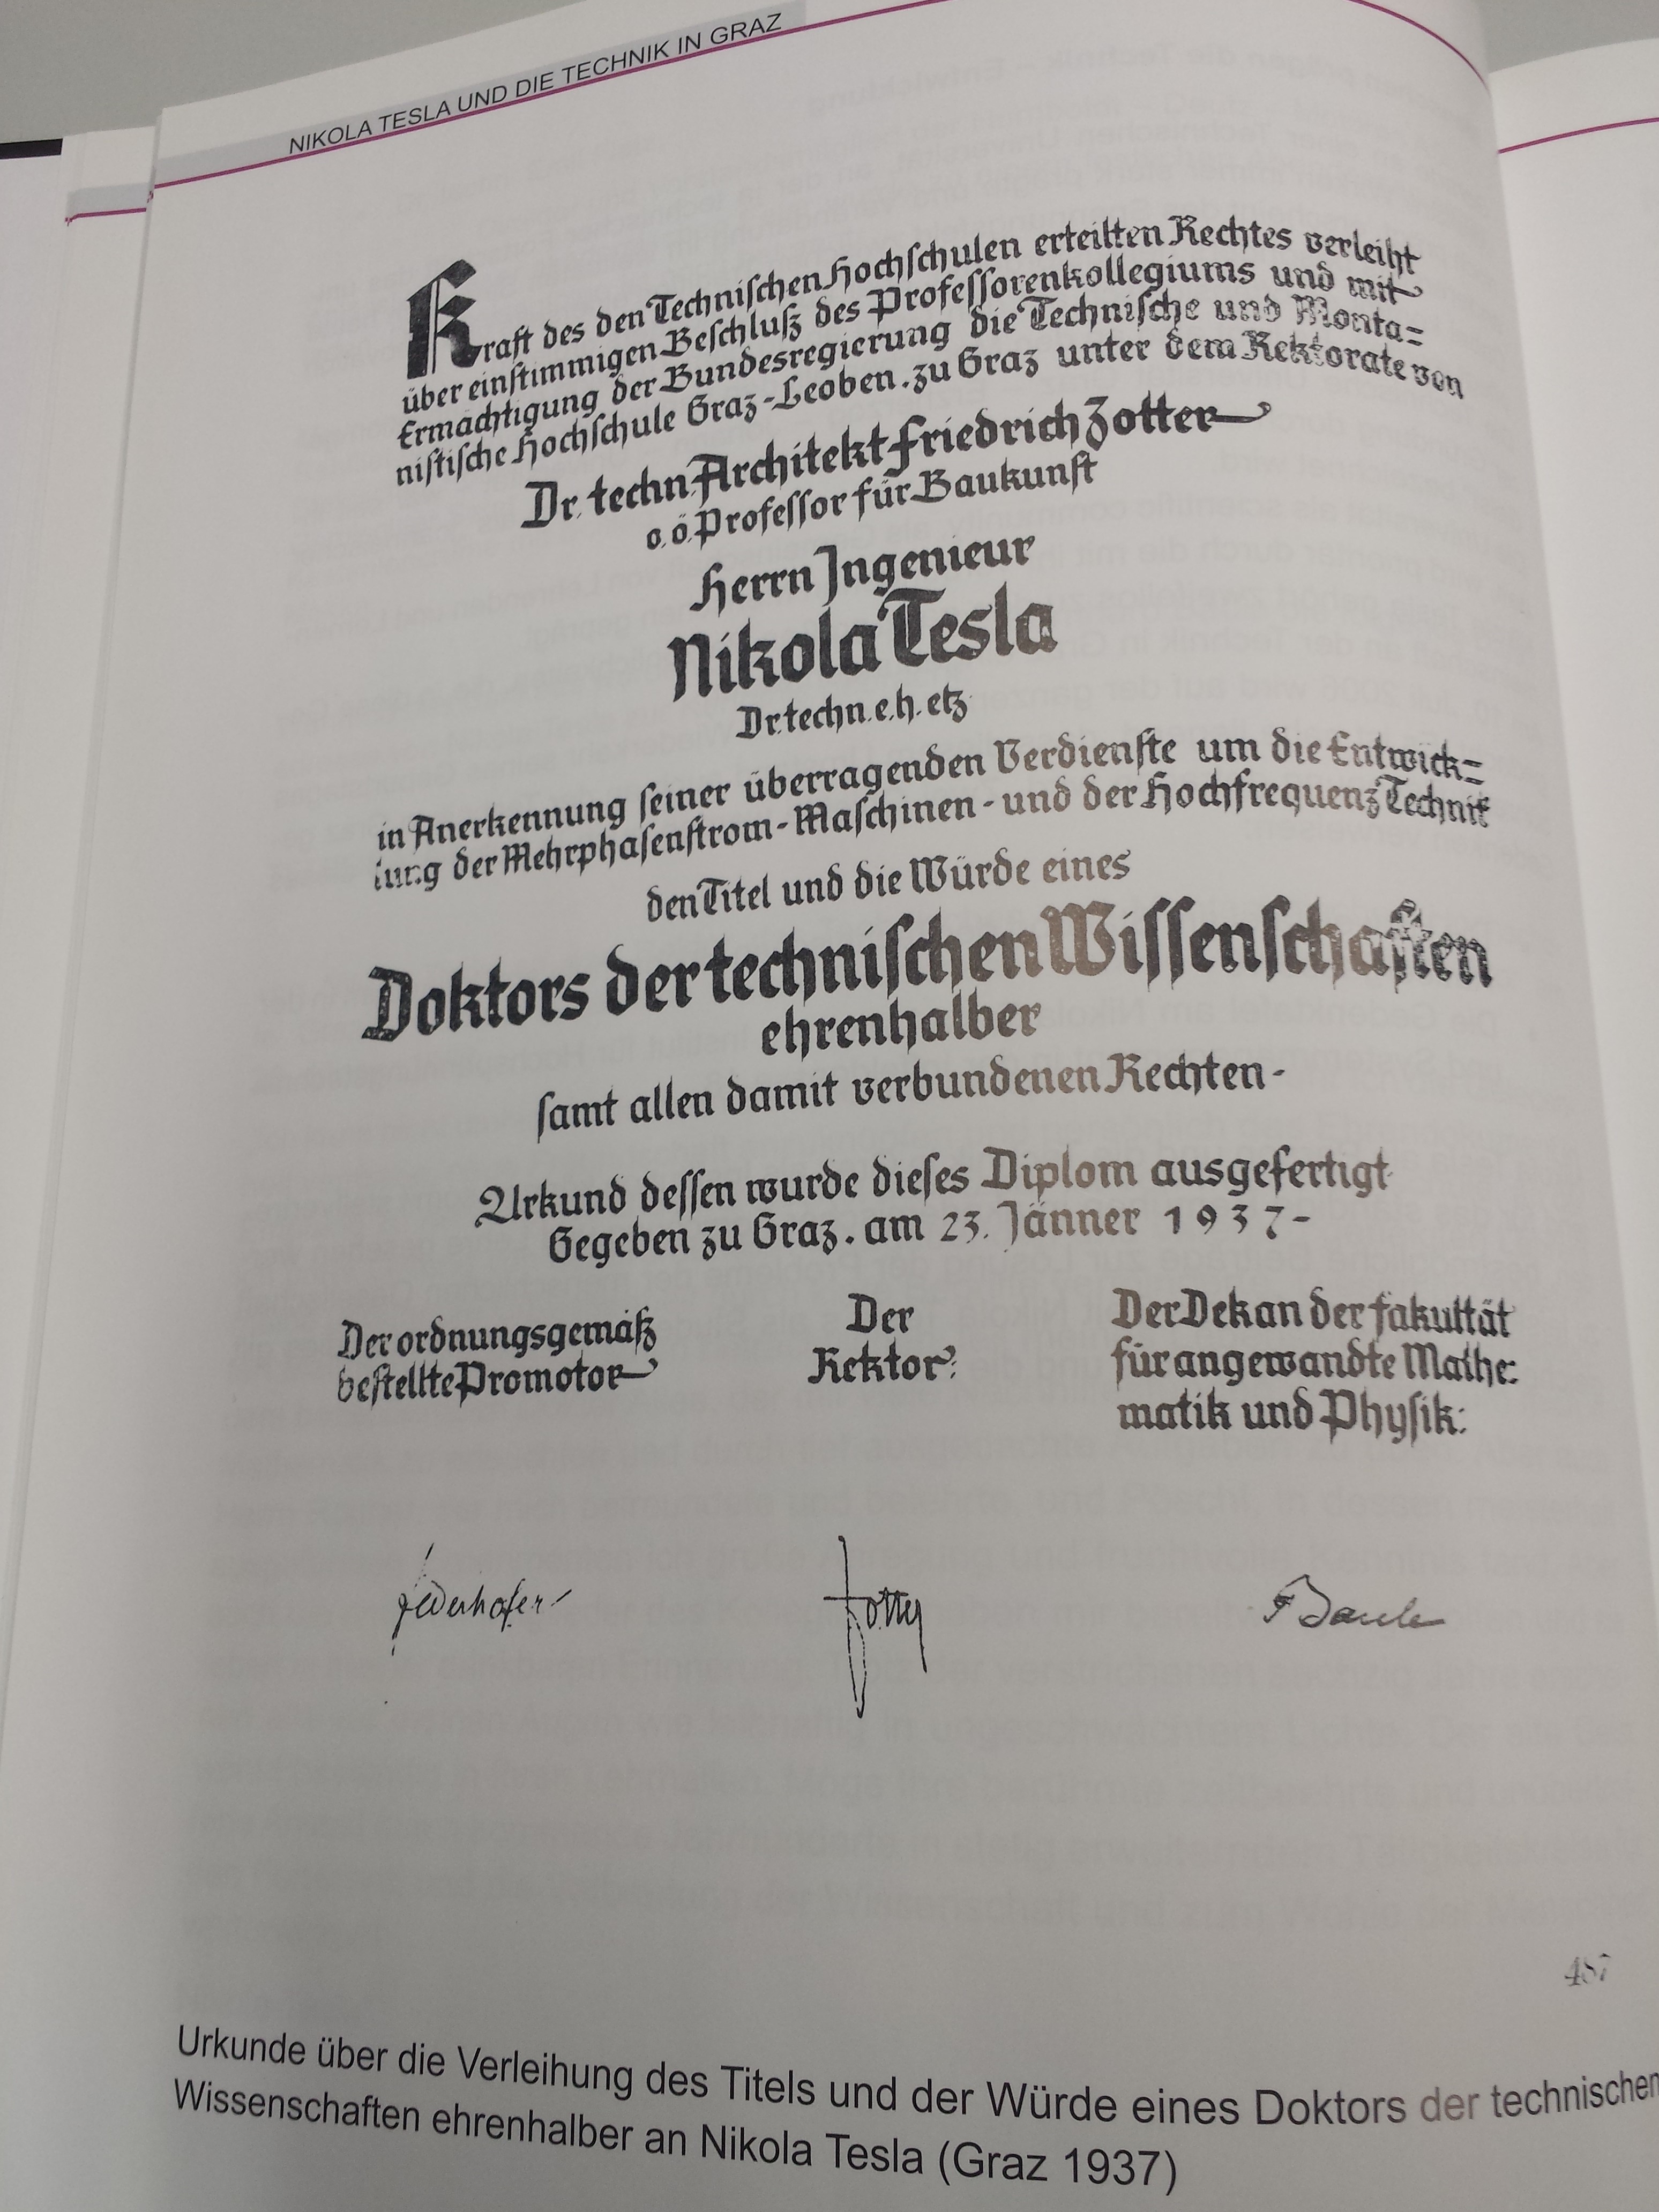 NIKOLA TESLA UND DIE TECHNIK IN GRAZ
Kraft des den Technischen Hochschulen erteilten Rechtes verleiht
über einstimmigen Beschluß des Professorenkollegiums und mit
Ermächtigung der Bundesregierung die Technische und Monta=
nistische Hochschule Graz-Leoben. zu Graz unter dem Rektorate von
Dr. techn. Architekt Friedrich Zotter
o. ö. Professor für Baukunst
Herrn Ingenieur
Nikola Tesla
Dr. techn. e. h. etz
in Anerkennung seiner überragenden Verdienste um die Entwick=
lung der Mehrphasenstrom-Maschinen- und der Hochfrequenz Technik
den Titel und die Würde eines
Doktors der technischen Wissenschaften
ehrenhalber
samt allen damit verbundenen Rechten-
Urkund dessen wurde dieses Diplom ausgefertigt
Gegeben zu Graz. am 23. Jänner 1937-
Der ordnungsgemäß
bestellte Promotor
Der
Rektor:
Der Dekan der Fakultät
für angewandte Mathe:
matik und Physik:
Federhofer
Zotter
B Baule
487
Urkunde über die Verleihung des Titels und der Würde eines Doktors der technischen
Wissenschaften ehrenhalber an Nikola Tesla (Graz 1937)